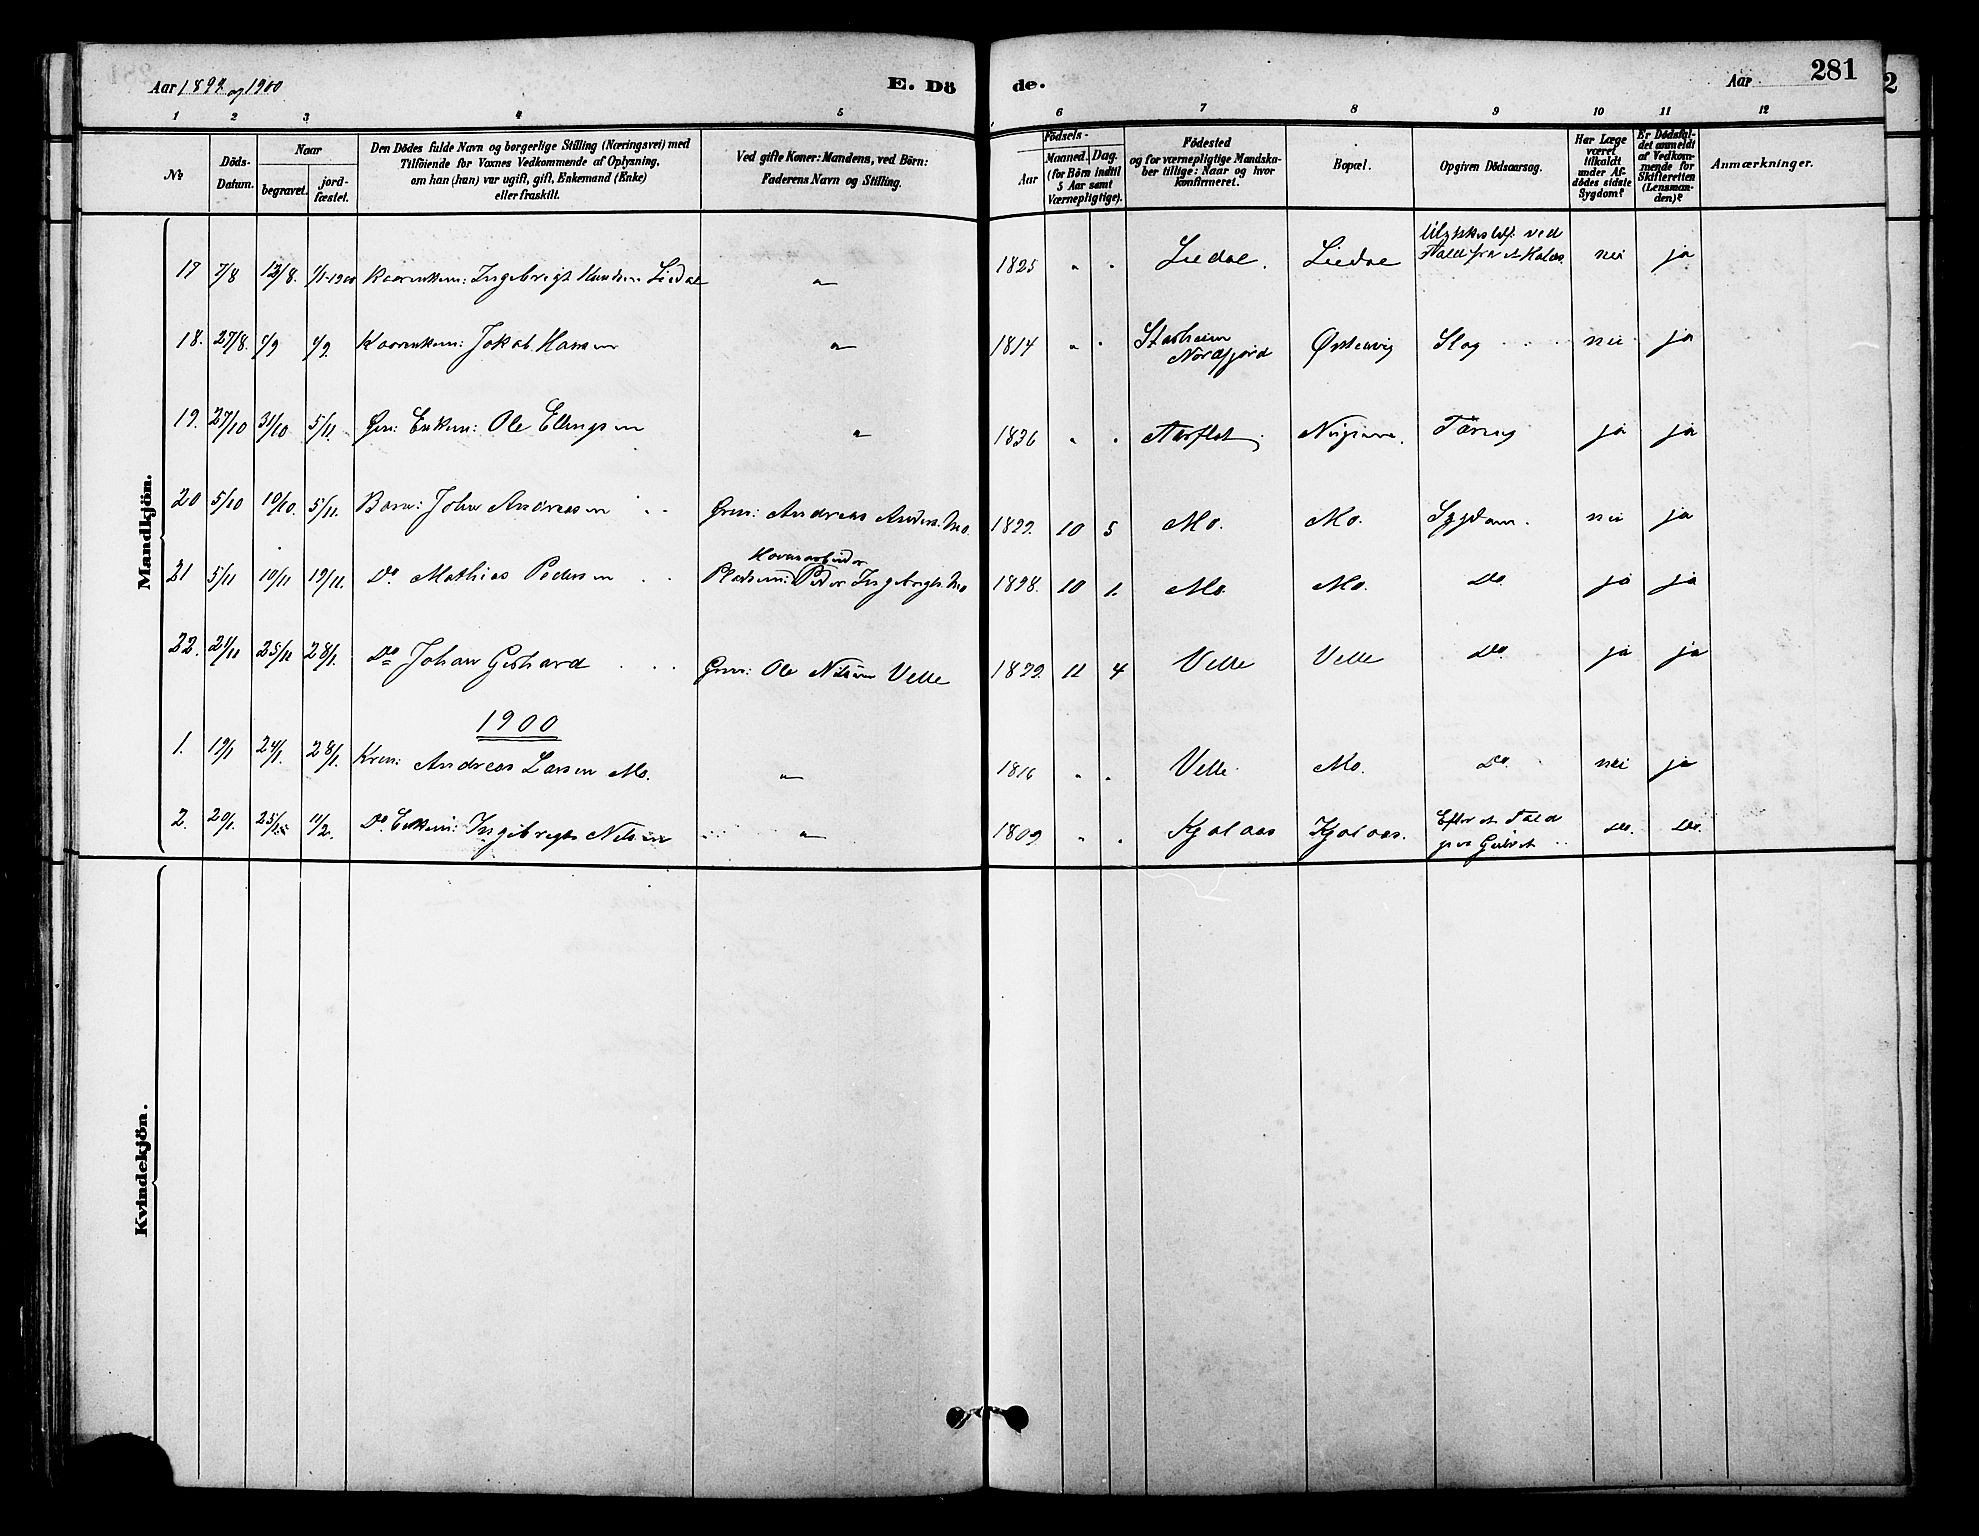 Aar 1899 og 1900
E. Dö
de.
Aar
281
2
1 2 3 4 5 6 7 8 9 10 11 12
№
Döds-Datum.
Naar
begravet.
jord-fæstet.
Den Dödes fulde Navn og borgerlige Stilling (Næringsvei) med
Tilföiende for Voxnes Vedkommende af Oplysning,
om han (hun) var ugift, gift, Enkemand (Enke)
eller fraskilt.
Ved gifte Koner: Mandens, ved Börn:
Faderens Navn og Stilling.
Födsels-
Aar
Maaned. Dag.
(for Börn indtil
5 Aar samt
Værnepligtige).
Födested
og for værnepligtige Mandska-
ber tillige: Naar og hvor
konfirmeret.
Bopæl.
Opgiven Dödsaarsag.
Har Læge
været
tilkaldt
under Af-
dödes sidste
Sygdom?
Er Dödsfal-
det anmeldt
af Vedkom-
mende for
Skifteretten
(Lensman-
den)?
Anmærkninger.
Mandkjön.
17 7/8 12/8. 7/1-1900 Kaarenkem: Ingebrigt Knudsen Liedal " 1825 " " Liedal. Liedal Ulykkestilf. ved
Fald fra et nei ja
18. 27/8. 4/9 4/9. Kaarenkem: Jokob Hansen " 1814 " " Starheim
Nordfjord Østenvig Slag nei ja
19. 27/10 31/10 5/11. Grm: Enkem: Ole Ellingsen " 1836 " " Aarflot Tæring ja ja
20 5/10 19/10. 5/11. Barn: John Andreasen Grm: Andreas Anders. Mo. 1899. 10 5 Mo. Mo. Sygdom. nei ja
21 5/11 10/11 19/11. Do Mathias Pedersen Havnearbeider
Pladsem: Peder Ingebrigts. Mo 1898. 10 1. Mo. Mo. Do. ja ja
22. 21/11 25/11 28/1. Do Johan Gerhard Grm: Ole Nilsen Velle 1899. 11 4 Velle Velle Do. ja ja
1900
1. 19/1 24/1. 28/1. Krm: Andreas Larsen Mo. " 1816 " " Velle Mo. Do. nei ja
2. 20/1. 25/1. 11/2. Do. Enkem: Ingebrigt Nilsen " 1809 " " Kjolaas Kjolaas. Efter et Fald
paa Gulvet Do. Do.
Kvindekjön.